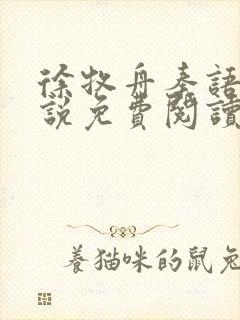 徐牧舟秦語
說免費閱讀
養貓咪的鼠兔